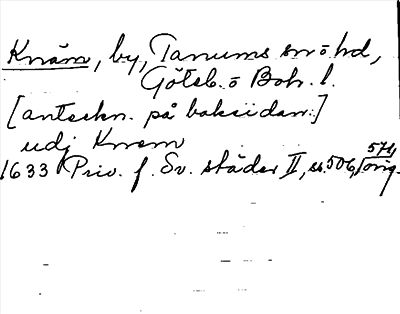 Knäm, by, Tanums sn o hd,
Göteb. o Boh. l.
[anteckn. på baksidan:]
udj Knem
1633 Priv. f. Sv. städer II, s. 506, 571, orig.